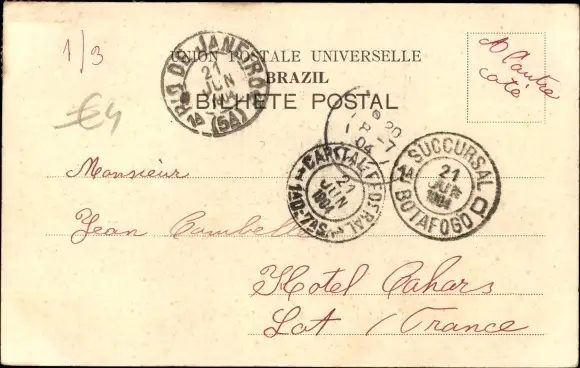 1/3
UNION POSTALE UNIVERSELLE
BRAZIL
BILHETE POSTAL
A l'autre
coté
€4
RIO DE JANEIRO
21
JUN
(5A)
20
8-7
04
CAPITAL FEDERAL
21
JUN
1904
1A D. 7A S.
SUCCURSAL
1A
21
JUN
1904
BOTAFOGO
D
Monsieur
Jean
Hotel Cahors
Lot / France